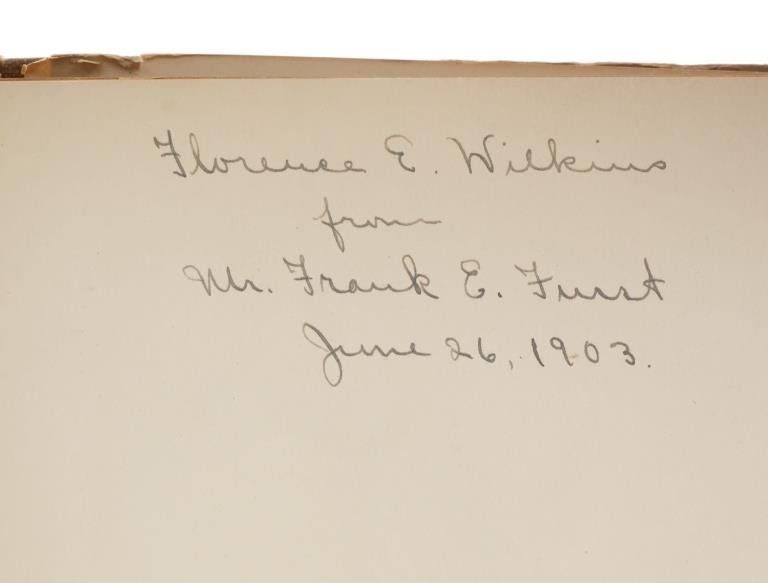 Florence E. Wilkins
from
Mr. Frank E. Furst
June 26, 1903.